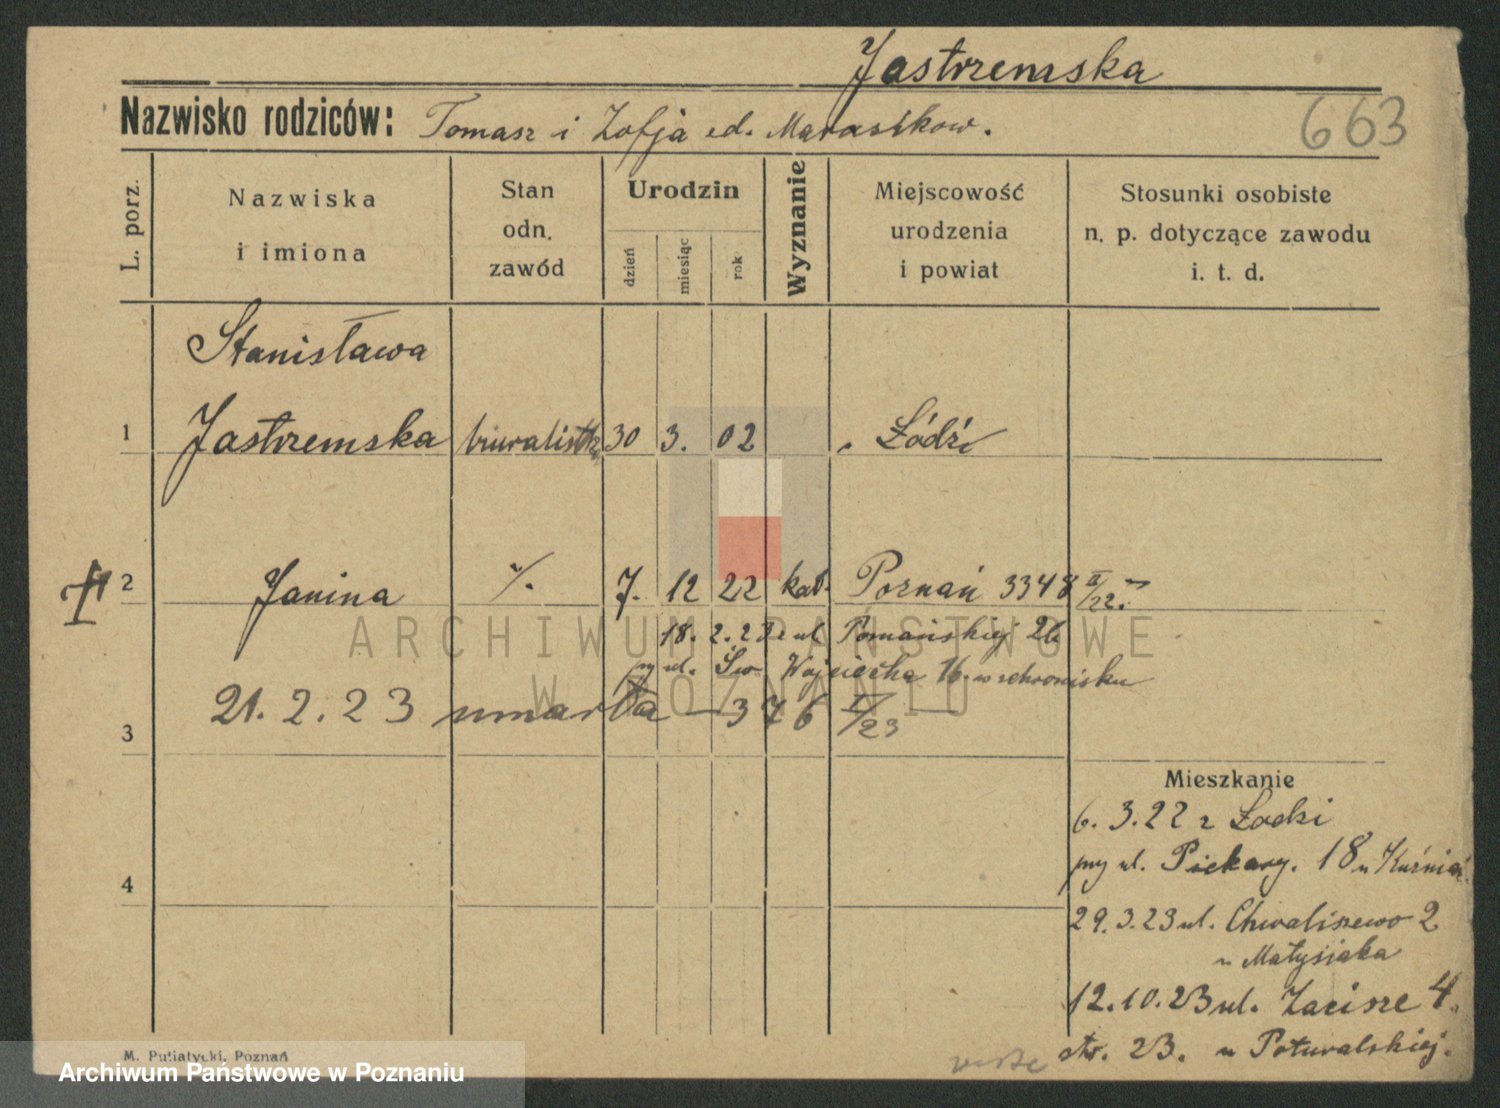 Jastrzemska
Nazwisko rodziców: Tomasz i Zofja Marasikow.
663
L. porz.
Nazwiska
i imiona
Stan
odn.
zawód
Urodzin
dzień
miesiąc
rok
Wyznanie
Miejscowość
urodzenia
i powiat
Stosunki osobiste
n. p. dotyczące zawodu
i. t. d.
Stanisława
1 Jastrzemska biuralistka 30 3. 02 Łódź
2 Janina 7. 12 22 kat. Poznań 3348 II/22.
18. 2. 23 ul Poznańskiej 26
ul. Św. Wojciecha 16. w schronisku
21. 2. 23 umarła — 376 I/23 —
3
Mieszkanie
6. 3. 22 z Łodzi
4
przy ul. Piekary. 18 u
29. 3. 23 ul. Chwaliszewo 2
u Matysiaka
12. 10. 23 ul. Zacisze 4.
str. 23. u Poturalskiej.
M. Putiatycki, Poznań
ARCHIWUM PAŃSTWOWE
W POZNANIU
Archiwum Państwowe w Poznaniu